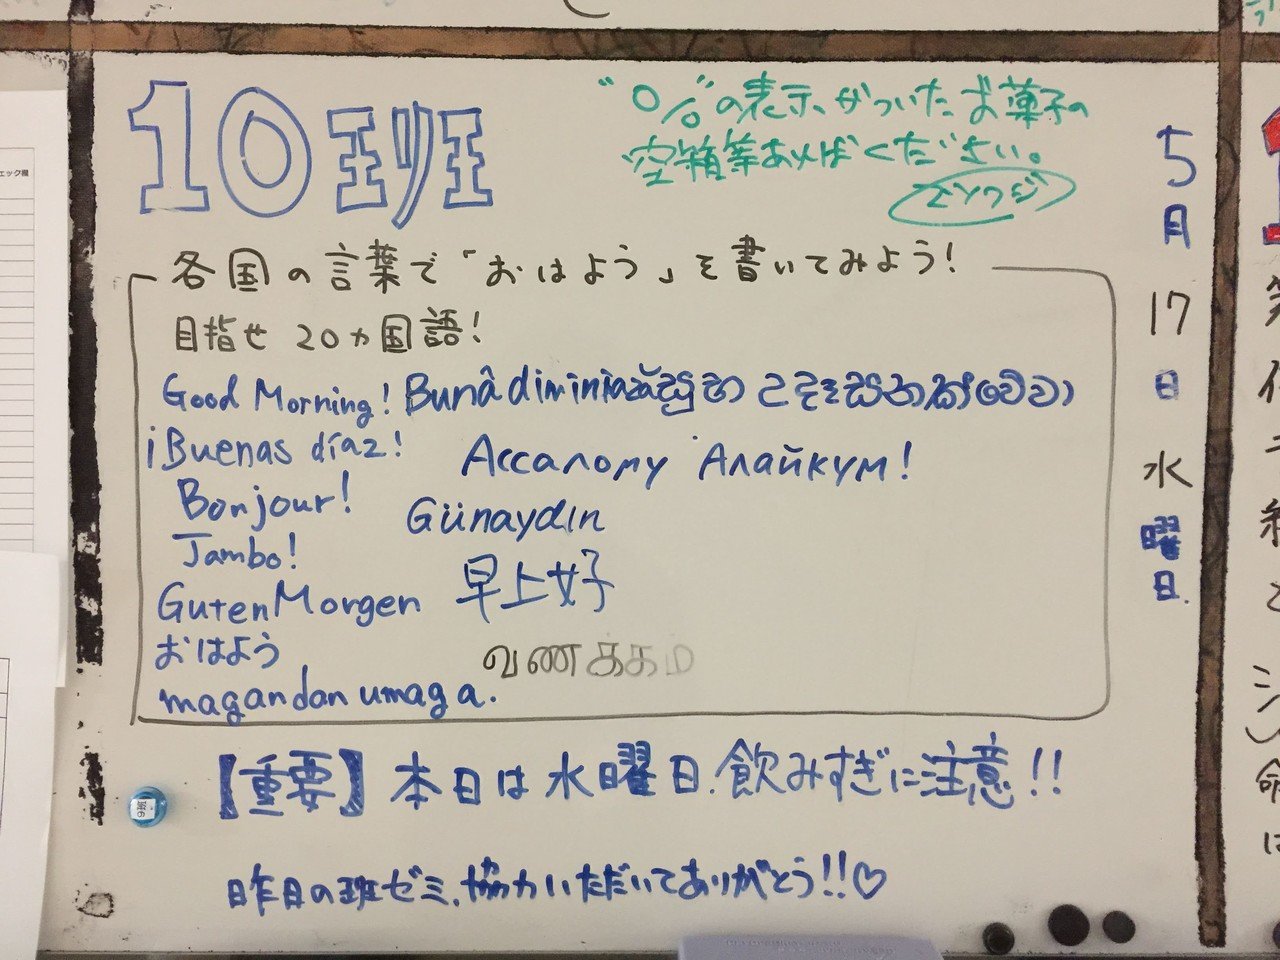 10班
"〇%"の表示がついたお菓子の
空箱等あればください。
エソウジ
5月17日水曜日.
各国の言葉で「おはよう」を書いてみよう!
目指せ 20ヵ国語!
Good Morning! Bunâ diminia
¡Buenas díaz!
Ассалому Алайкум!
Bonjour!
Günaydın
Jambo!
早上好
Guten Morgen
おはよう
வணக்கம
magandan umaga.
【重要】本日は水曜日.飲みすぎに注意!!
昨日の班ゼミ.協力いただいてありがとう!!♡